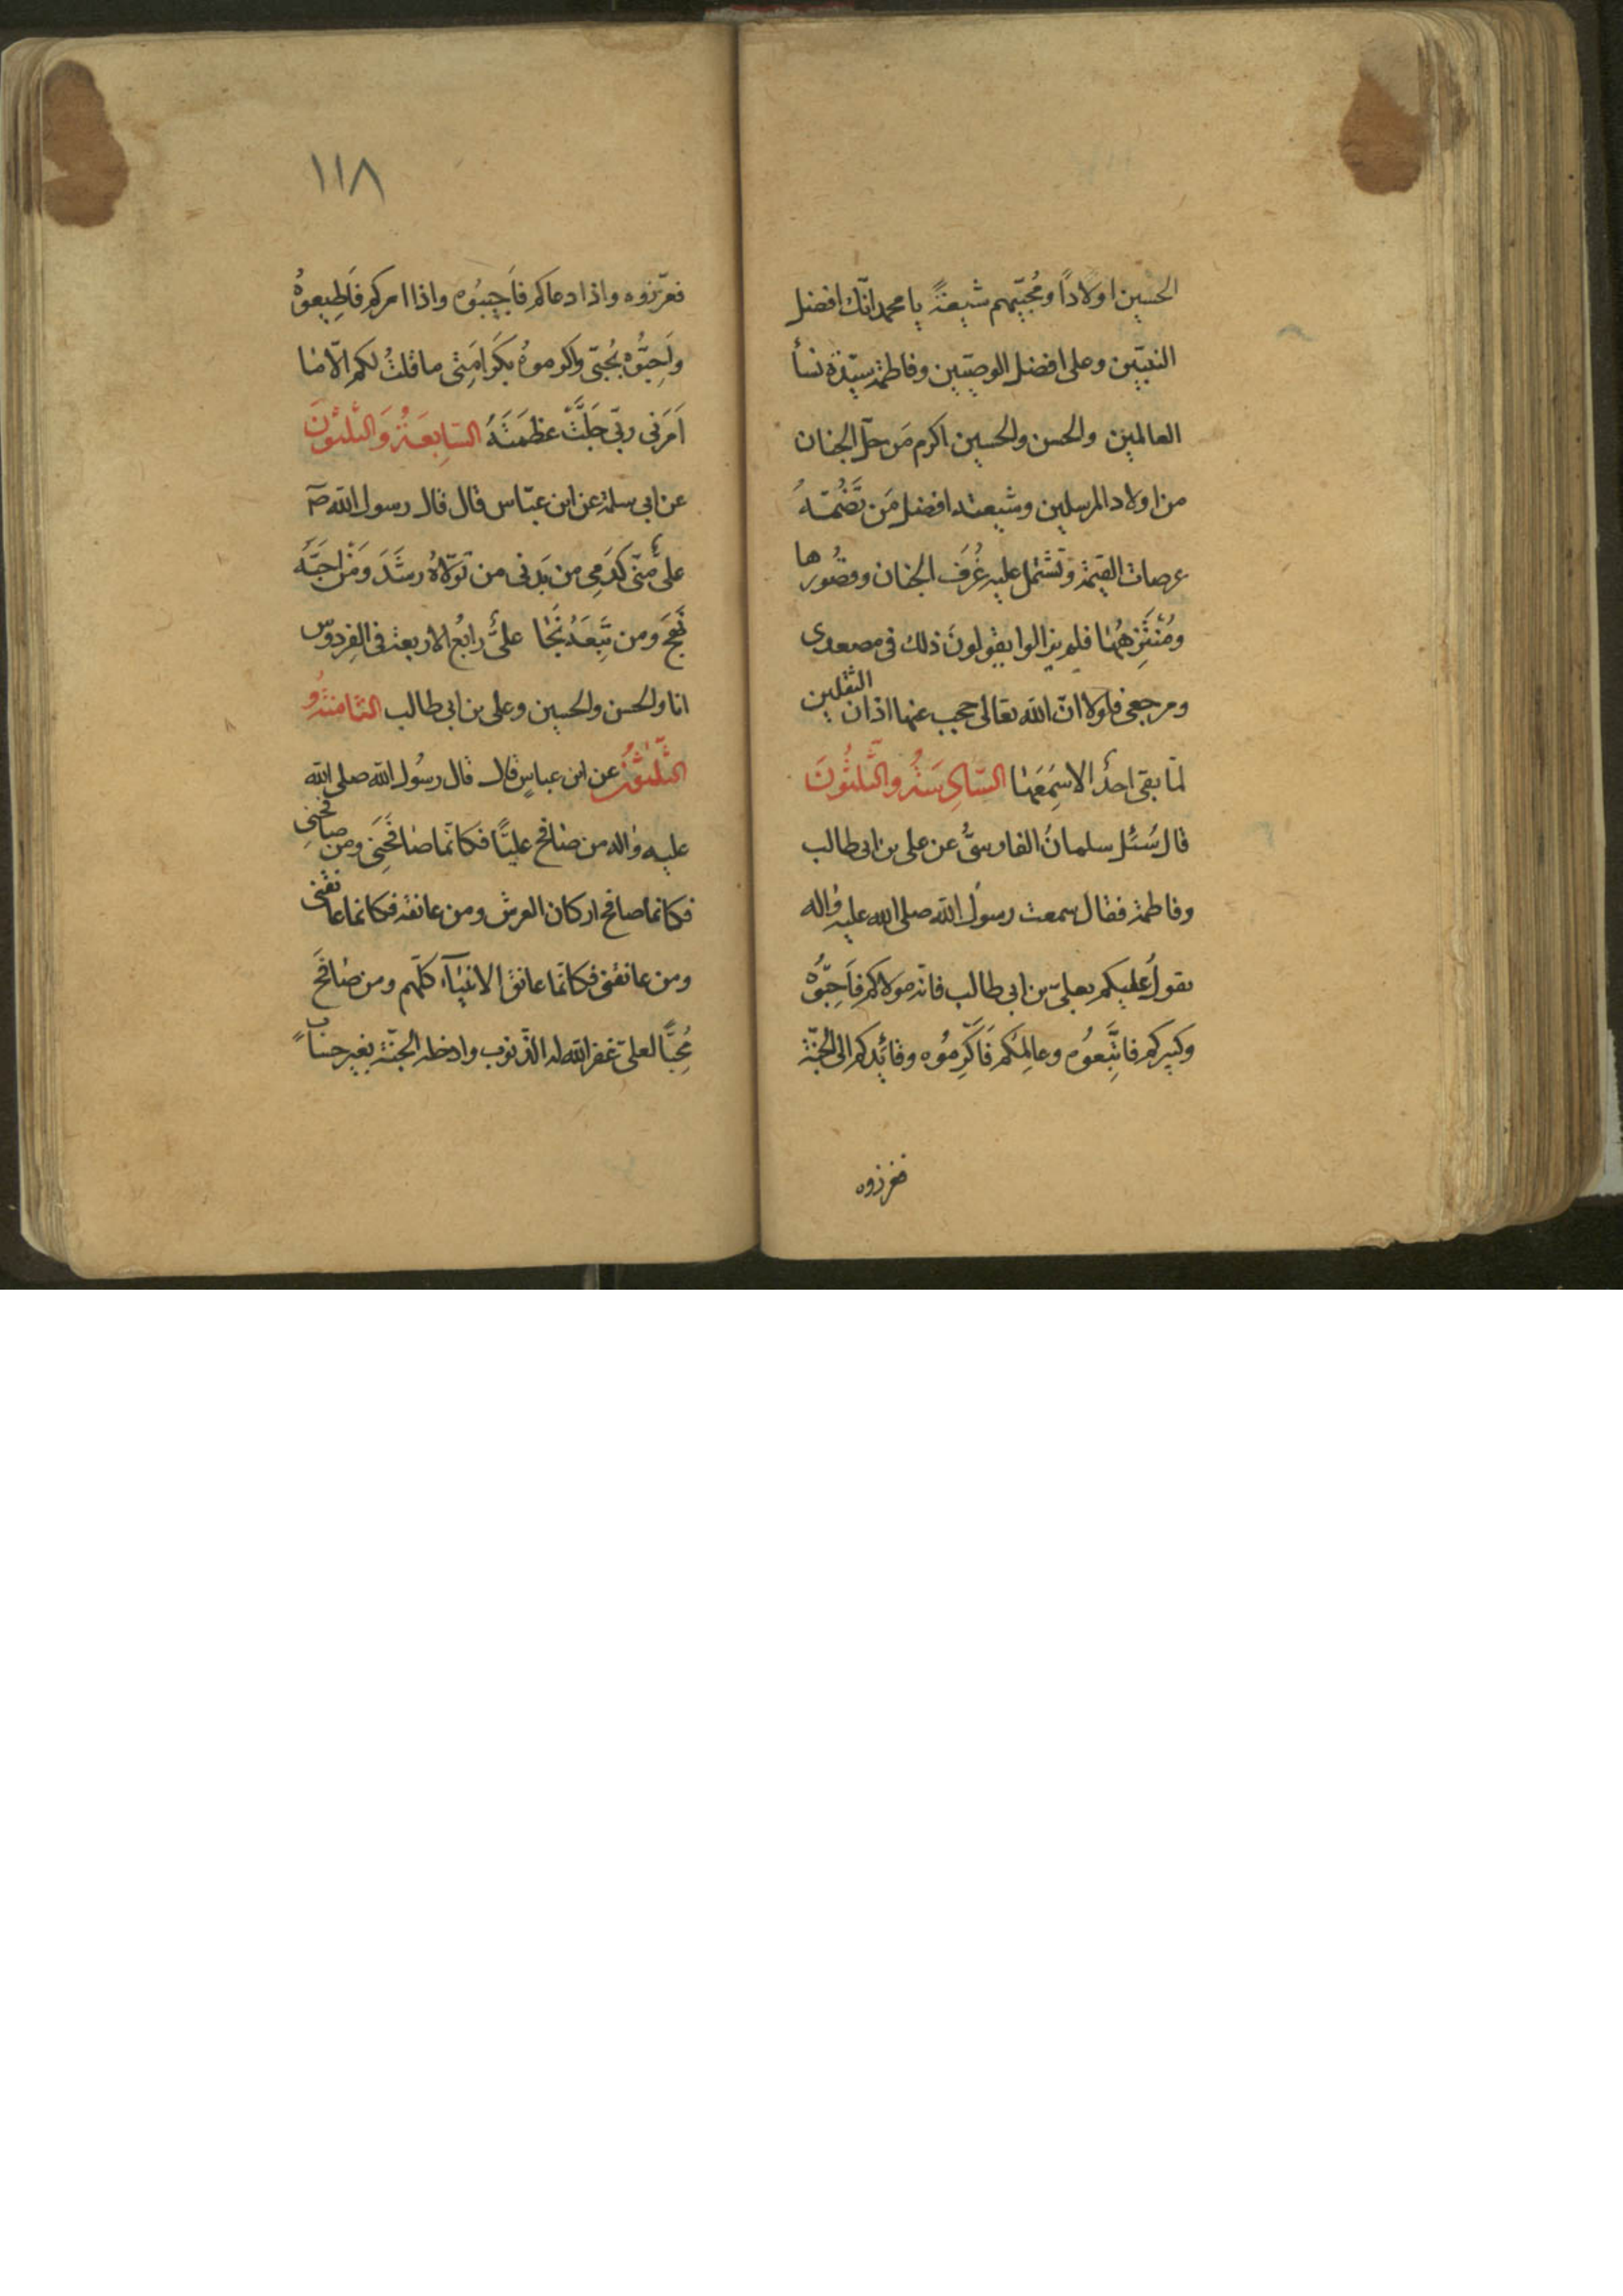 الحسين اولاداً ومُحبّيهم شيعةً يا محمد انّك افضل
النبيّين وعلى افضل الوصيّين وفاطمة سيّدة نسأ
العالمين والحسن والحسين اكرم مَن حلّ الجنان
من اولاد المرسلين وشيعته افضل مَن تَضُمّهُ
عرصات القيمة وتَشتمل عليه غُرَف الجنان وقصُورها
ومُنْتَزِهُهٰا فلم يزالوا يقولونَ ذلك فى مصعدى
ومرجعى فلولا انّ الله تعالى حجب عنها اذان الثقلين
لمّا بقى احدٌ الا سَمِعَهٰا السّادِسَةُ والثَّلثُونَ
قال سُئل سلمانُ الفارسىُّ عن على بن ابى طالب
وفاطمة فقال سمعت رسول الله صلى الله عليه واله
يقول عليكم بعلىّ بن ابى طالب فانّه مولاكم فَاَحِبّوُهُ
وكبيركم فاتَّبِعوُه وعالِمُكم فَاَكْرِموُه وقائِدكم الى الجنّة
فعززوه
١١٨
فعزّزوه واذا دعاكم فاَجيبُوه واذا امركم فاَطيعوُهُ
واَحِبُّوُه بحُبّى واكرموهُ بكَرامَتى ما قلتُ لكم الّا مٰا
اَمَرَنى ربّى جَلَّتْ عظمَتَهُ السّابِعَةُ وَالثَّلثُونَ
عن ابى سلمة عن ابن عبّاس قال قال رسول الله ص
علىٌّ منّى كَدَمى من بَدنى من تولّاهُ رشَدَ وَمَن اَحبَّهُ
نَجَحَ ومن تَبِعَهُ نَجٰا علىٌّ رابعُ الاربعة فى الفِردوس
انا والحسن والحسين وعلى بن ابى طالب الثّامنَةُ و
الثَّلثُونَ عن ابن عباسٍ قال قال رسُول الله صلى الله
عليه واله من صٰافح عليّاً فكانّما صٰافَحَنى ومن صافحنى
فكانما صافح اركان العرش ومن عانقه فكانما عانقنى
ومن عانقنى فكانّما عانق الانبيٰآء كلّهم ومن صٰافَحَ
مُحِبّاً لعلىّ غفر الله له الذّنوب وادخله الجنّة بغير حسابٍ